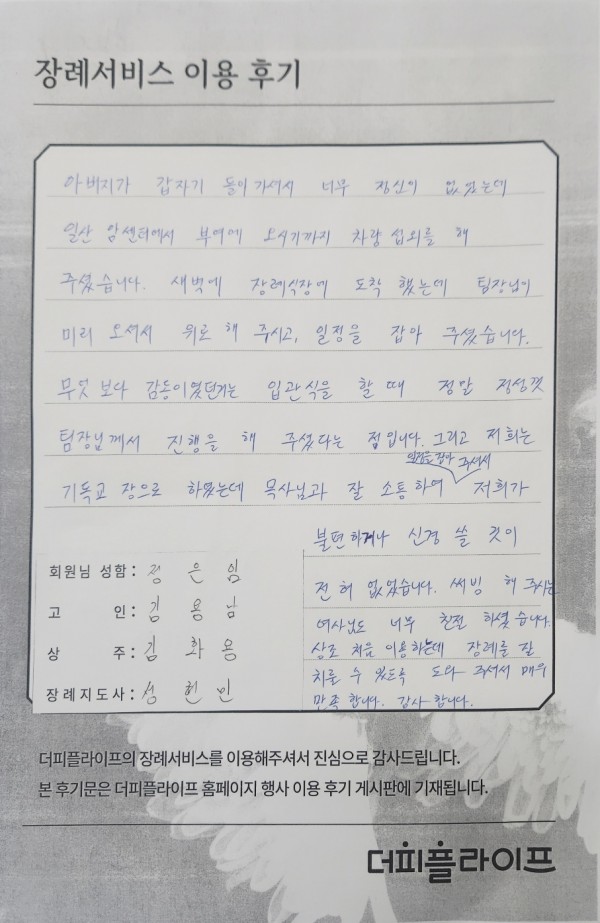 장례서비스 이용 후기
아버지가 갑자기 돌아가셔서 너무 정신이 없었는데
일산 암센터에서 부여에 오시기까지 차량 섭외를 해
주셨습니다. 새벽에 장례식장에 도착 했는데 팀장님이
미리 오셔서 위로 해 주시고, 일정을 잡아 주셨습니다.
무엇 보다 감동이였던거는 입관식을 할 때 정말 정성껏
팀장님께서 진행을 해 주셨다는 점입니다. 그리고 저희는
일정을 잡아 주셔서
기독교 장으로 하였는데 목사님과 잘 소통하여 저희가
불편하거나 신경 쓸 것이
전혀 없었습니다. 써빙 해 주시는
여사님도 너무 친절 하셨습니다.
상조 처음 이용하는데 장례를 잘
치를 수 있도록 도와 주셔서 매우
만족합니다. 감사합니다.
회원님 성함: 정은임
고 인: 김용남
상 주: 김화용
장례지도사: 성현민
더피플라이프의 장례서비스를 이용해주셔서 진심으로 감사드립니다.
본 후기문은 더피플라이프 홈페이지 행사 이용 후기 게시판에 기재됩니다.
더피플라이프